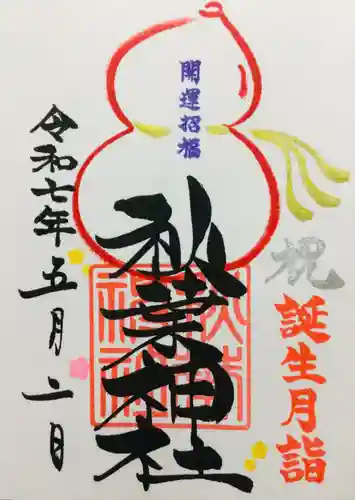 祝
誕生月詣
開運招福
秋葉神社
秋葉神社
令和七年五月二日